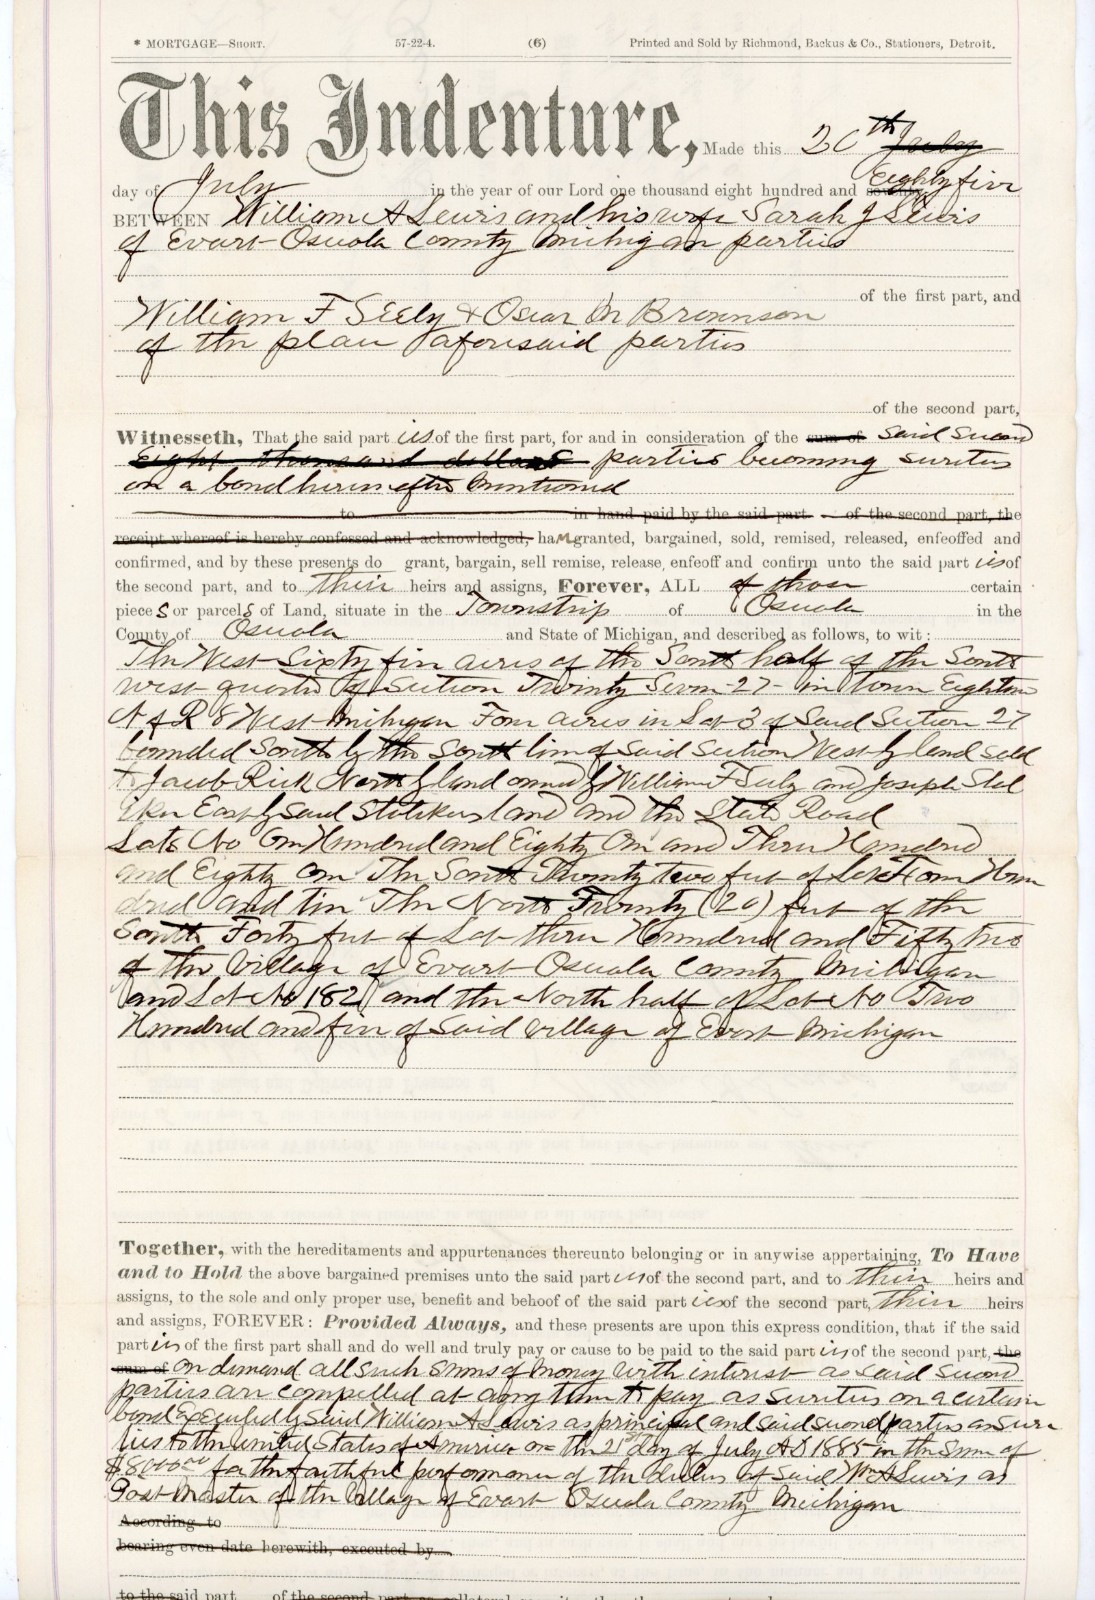 * MORTGAGE—SHORT. 57-22-4. (6) Printed and Sold by Richmond, Backus & Co., Stationers, Detroit.
This Indenture, Made this 20th July
day of July in the year of our Lord one thousand eight hundred and seventy Eighty five
BETWEEN William A Lewis and his wife Sarah J Lewis
of Evart Osceola County Michigan parties
of the first part, and
William F Seely & Oscar M Brownson
of the place aforesaid parties
of the second part,
Witnesseth, That the said part ies of the first part, for and in consideration of the sum of Said Second
Eight thousand dollars parties becoming sureties
on a bond herein after mentioned
to in hand paid by the said part of the second part, the
receipt whereof is hereby confessed and acknowledged, have granted, bargained, sold, remised, released, enfeoffed and
confirmed, and by these presents do grant, bargain, sell remise, release, enfeoff and confirm unto the said part ies of
the second part, and to their heirs and assigns, Forever, ALL of those certain
piece s or parcel s of Land, situate in the Township of Osceola in the
County of Osceola and State of Michigan, and described as follows, to wit:
The West Sixty five acres of the South half of the South
west quarter of Section Twenty Seven 27 in town Eighteen
N of R 8 West Michigan Four acres in Lot 3 of Said Section 27
bounded South by the South line of Said Section West by land sold
to Jacob Rick North by land owned by William F Seely and Joseph Stol
iker East by said Stolikers land and the State Road
Lots No One Hundred and Eighty One and Three Hundred
and Eighty one The South Twenty two feet of Lot Four Hun
dred and ten The North Twenty (20) feet of the
South Forty feet of Lot three Hundred and Fifty two
of the Village of Evart Osceola County Michigan
and Lot No 182 and the North half of Lot No Two
Hundred and five of Said Village of Evart Michigan
Together, with the hereditaments and appurtenances thereunto belonging or in anywise appertaining, To Have
and to Hold the above bargained premises unto the said part ies of the second part, and to their heirs and
assigns, to the sole and only proper use, benefit and behoof of the said part ies of the second part, their heirs
and assigns, FOREVER: Provided Always, and these presents are upon this express condition, that if the said
part ies of the first part shall and do well and truly pay or cause to be paid to the said part ies of the second part, the
sum of on demand all such sums of money with interest as said second
parties are compelled at any time to pay as sureties on a certain
bond Executed by Said William A Lewis as principal and said second parties as sure
ties to the United States of America on the 21st day of July AD 1885 in the Sum of
$8000.00 for the faithful performance of the duties of said Wm A Lewis as
Post Master of the Village of Evart Osceola County Michigan
According to
bearing even date herewith, executed by
to the said part of the second part as collateral